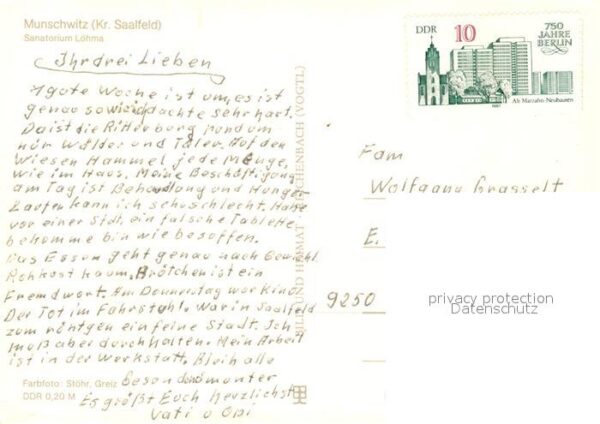 Munschwitz (Kr. Saalfeld)
Sanatorium Löhma
Ihr drei Lieben
1 gute Woche ist um, es ist
genau so wie ich dachte sehr hart.
Da ist die Ritterburg rundum
nur Wälder und Täler. Auf den
Wiesen Hammel jede Menge,
wie im Haus. Meine Beschäftigung
am Tag ist Behandlung und Hunger
Laufen kann ich sehr schlecht. Habe
vor einer Stdt. ein falsche Tablette
bekomme bin wie besoffen.
Das Essen geht genau nach Gewicht
Rohkost kaum. Brötchen ist ein
Fremdwort. Am Donnerstag war Kino
Der Tot im Fahrstuhl. War in Saalfeld
zum röntgen eine feine Stadt. Ich
muß aber durchhalten. Mein Arbeit
ist in der Werkstatt. Bleib alle
besonders munter
Es größt Euch herzlichst
Vati u Opi
Farbfoto: Stöhr, Greiz
DDR 0,20 M
BILD UND HEIMAT REICHENBACH (VOGTL)
DDR 10 750 JAHRE BERLIN
Alt Marzahn-Neubauten
1987
Fam
Wolfgang Grasselt
E.
9250
privacy protection
Datenschutz